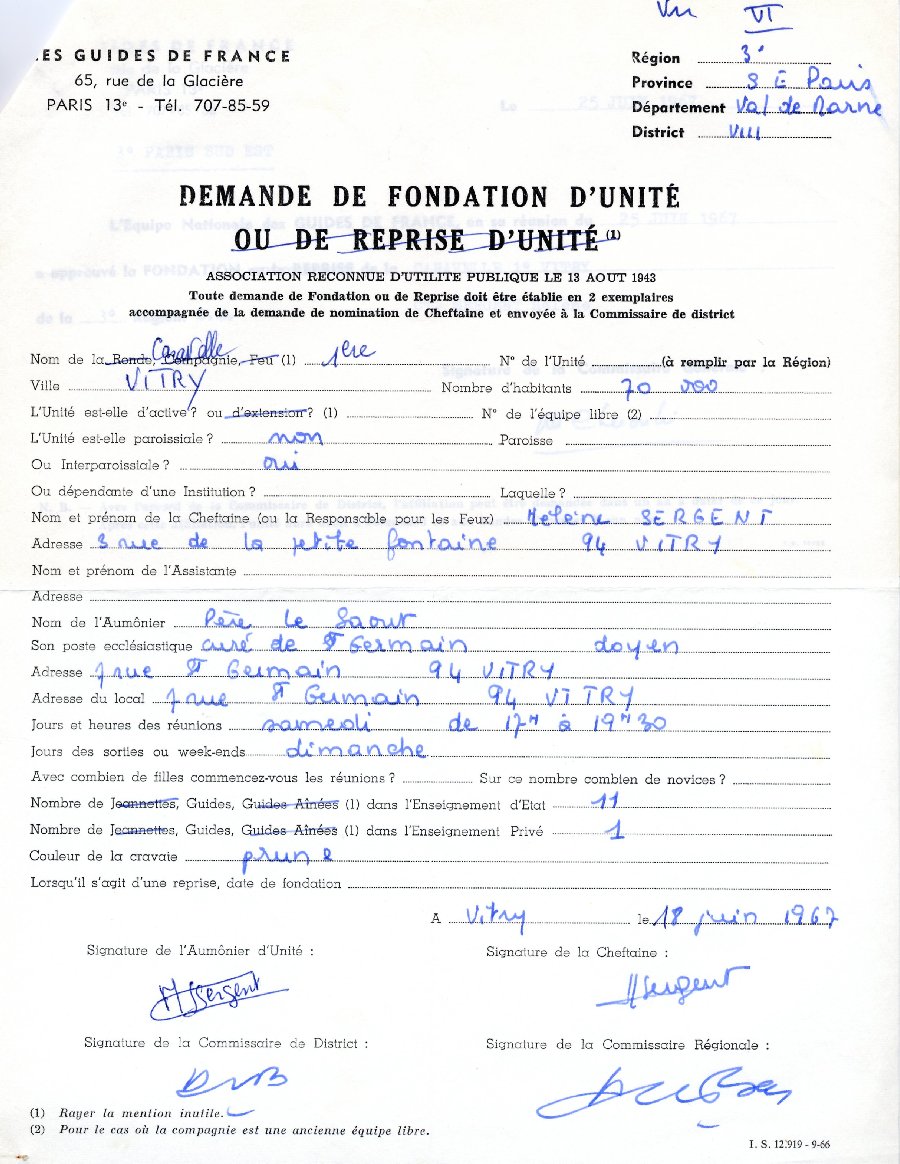 Vu VI
ES GUIDES DE FRANCE
65, rue de la Glacière
PARIS 13e - Tél. 707-85-59
Région 3e
Province S E Paris
Département Val de Marne
District VIII
DEMANDE DE FONDATION D'UNITÉ
OU DE REPRISE D'UNITÉ (1)
ASSOCIATION RECONNUE D'UTILITE PUBLIQUE LE 13 AOUT 1943
Toute demande de Fondation ou de Reprise doit être établie en 2 exemplaires
accompagnée de la demande de nomination de Cheftaine et envoyée à la Commissaire de district
Nom de la Ronde, Compagnie, Feu (1) Caravelle 1ere N° de l'Unité (à remplir par la Région)
Ville VITRY Nombre d'habitants 70 000
L'Unité est-elle d'active ? ou d'extension ? (1) N° de l'équipe libre (2)
L'Unité est-elle paroissiale ? non Paroisse
Ou Interparoissiale ? oui
Ou dépendante d'une Institution ? Laquelle ?
Nom et prénom de la Cheftaine (ou la Responsable pour les Feux) Helène SERGENT
Adresse 3 rue de la petite fontaine 94 VITRY
Nom et prénom de l'Assistante
Adresse
Nom de l'Aumônier Père Le Saout
Son poste ecclésiastique curé de St Germain doyen
Adresse 7 rue St Germain 94 VITRY
Adresse du local 7 rue St Germain 94 VITRY
Jours et heures des réunions samedi de 17H à 19H30
Jours des sorties ou week-ends dimanche
Avec combien de filles commencez-vous les réunions ? Sur ce nombre combien de novices ?
Nombre de Jeannettes, Guides, Guides Aînées (1) dans l'Enseignement d'Etat 11
Nombre de Jeannettes, Guides, Guides Aînées (1) dans l'Enseignement Privé 1
Couleur de la cravaie prune
Lorsqu'il s'agit d'une reprise, date de fondation
A Vitry le 18 juin 1967
Signature de l'Aumônier d'Unité : Signature de la Cheftaine :
HSergent HSergent
Signature de la Commissaire de District : Signature de la Commissaire Régionale :
(1) Rayer la mention inutile.
(2) Pour le cas où la compagnie est une ancienne équipe libre.
I. S. 12.919 - 9-66